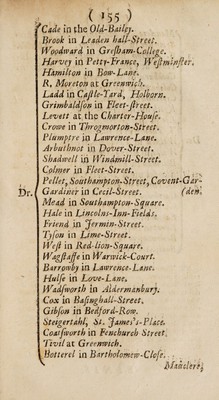 ( 155 )
Cade in the Old-Bailey.
Brook in Leaden hall-Street.
Woodward in Gresham-College.
Harvey in Petty-France, Westminster.
Hamilton in Bow-Lane.
R. Moreton at Greenwich.
Ladd in Castle-Yard, Holborn.
Grimbaldson in Fleet-street.
Levett at the Charter-House.
Crowe in Throgmorton-Street.
Plumptre in Lawrence-Lane.
Arbuthnot in Dover-Street.
Shadwell in Windmill-Street.
Colmer in Fleet-Street.
Pellet, Southampton-Street, Covent-Gar-
Dr. Gardiner in Cecil-Street. (den.
Mead in Southampton-Square.
Hale in Lincolns-Inn-Fields.
Friend in Jermin-Street.
Tyson in Lime-Street.
West in Red-lion-Square.
Wagstaffe in Warwick-Court.
Barrowby in Lawrence-Lane.
Hulse in Love-Lane.
Wadsworth in Aldermanbury.
Cox in Basinghall-Street.
Gibson in Bedford-Row.
Steigertahl, St. James's-Place.
Coatsworth in Fenchurch Street.
Tivil at Greenwich.
Botterel in Bartholomew-Close.
Manclere,